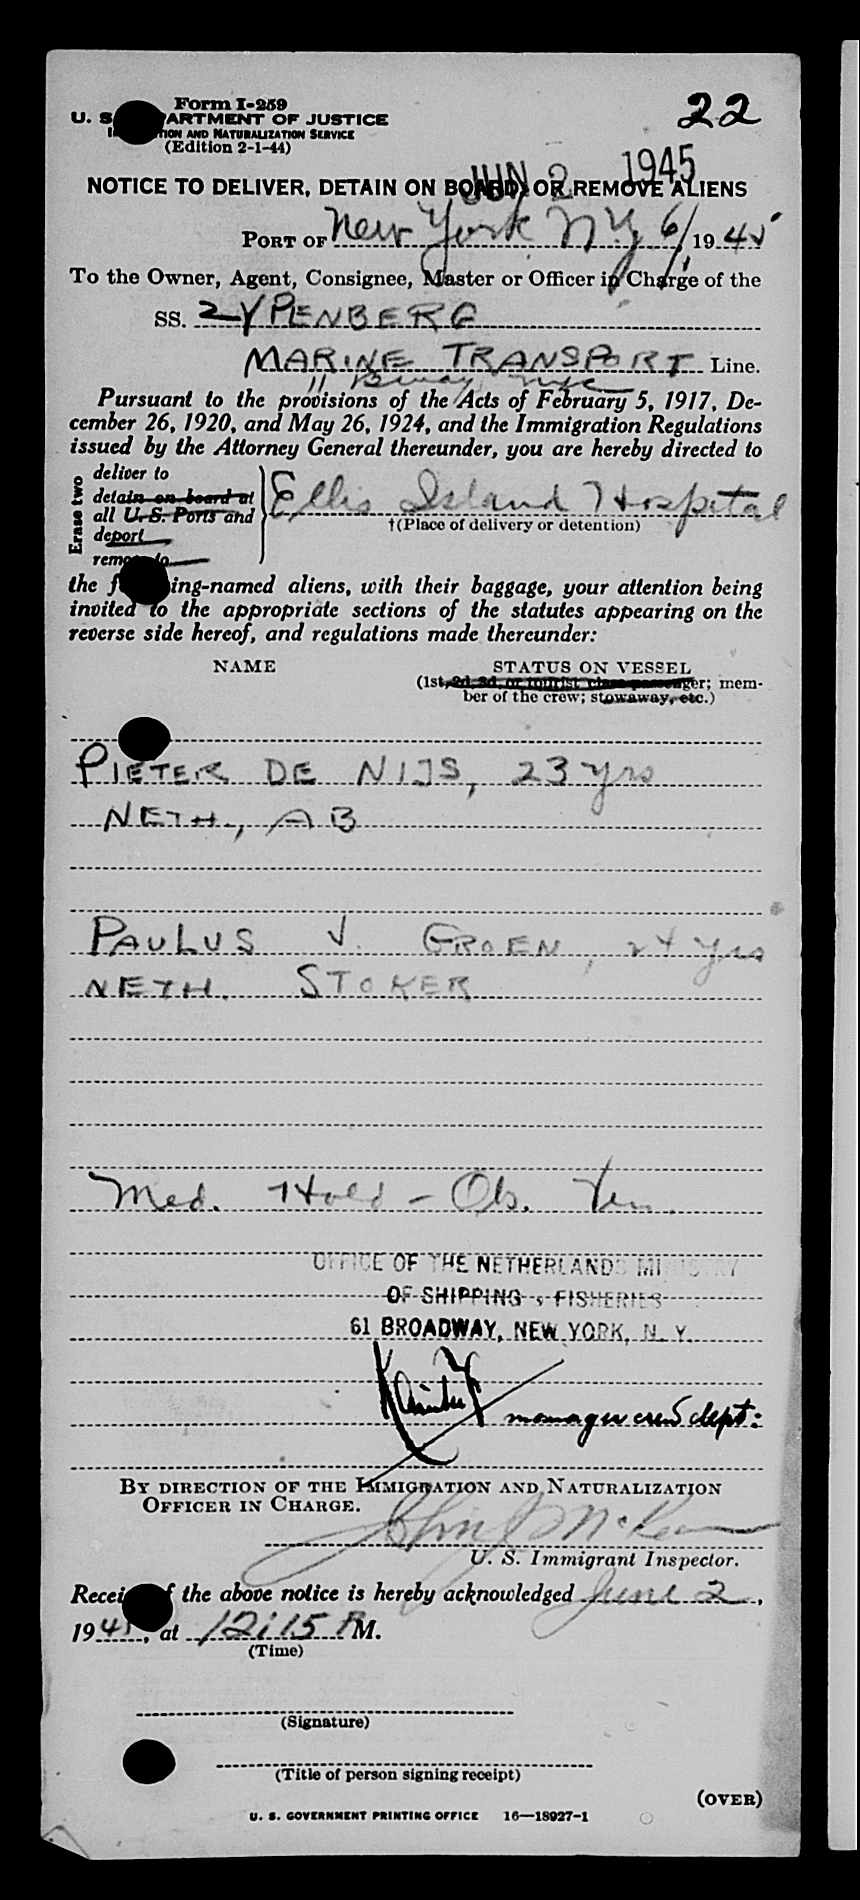 22
Form I-259
U. S. DEPARTMENT OF JUSTICE
IMMIGRATION AND NATURALIZATION SERVICE
(Edition 2-1-44)
JUN 2 1945
NOTICE TO DELIVER, DETAIN ON BOARD, OR REMOVE ALIENS
PORT OF New York N.Y. 6/1, 1945
To the Owner, Agent, Consignee, Master or Officer in Charge of the
SS. ZYPENBERG
MARINE TRANSPORT Line.
11 Bway, NYC
Pursuant to the provisions of the Acts of February 5, 1917, De-
cember 26, 1920, and May 26, 1924, and the Immigration Regulations
issued by the Attorney General thereunder, you are hereby directed to
Erase two
deliver to
detain on board at
all U. S. Ports and
deport
remove to
Ellis Island Hospital
†(Place of delivery or detention)
the following-named aliens, with their baggage, your attention being
invited to the appropriate sections of the statutes appearing on the
reverse side hereof, and regulations made thereunder:
NAME STATUS ON VESSEL
(1st, 2d, 3d, or tourist class passenger; mem-
ber of the crew; stowaway, etc.)
PIETER DE NIJS, 23 yrs
NETH., AB
PAULUS V. GROEN, 24 yrs
NETH. STOKER
Med. Hold - Ob. Ven.
OFFICE OF THE NETHERLANDS MINISTRY
OF SHIPPING & FISHERIES
61 BROADWAY, NEW YORK, N. Y.
manager crew dept:
BY DIRECTION OF THE IMMIGRATION AND NATURALIZATION
OFFICER IN CHARGE.
John J
U. S. Immigrant Inspector.
Receipt of the above notice is hereby acknowledged June 2,
1945, at 12:15 PM.
(Time)
(Signature)
(Title of person signing receipt)
(OVER)
U. S. GOVERNMENT PRINTING OFFICE 16—18927-1